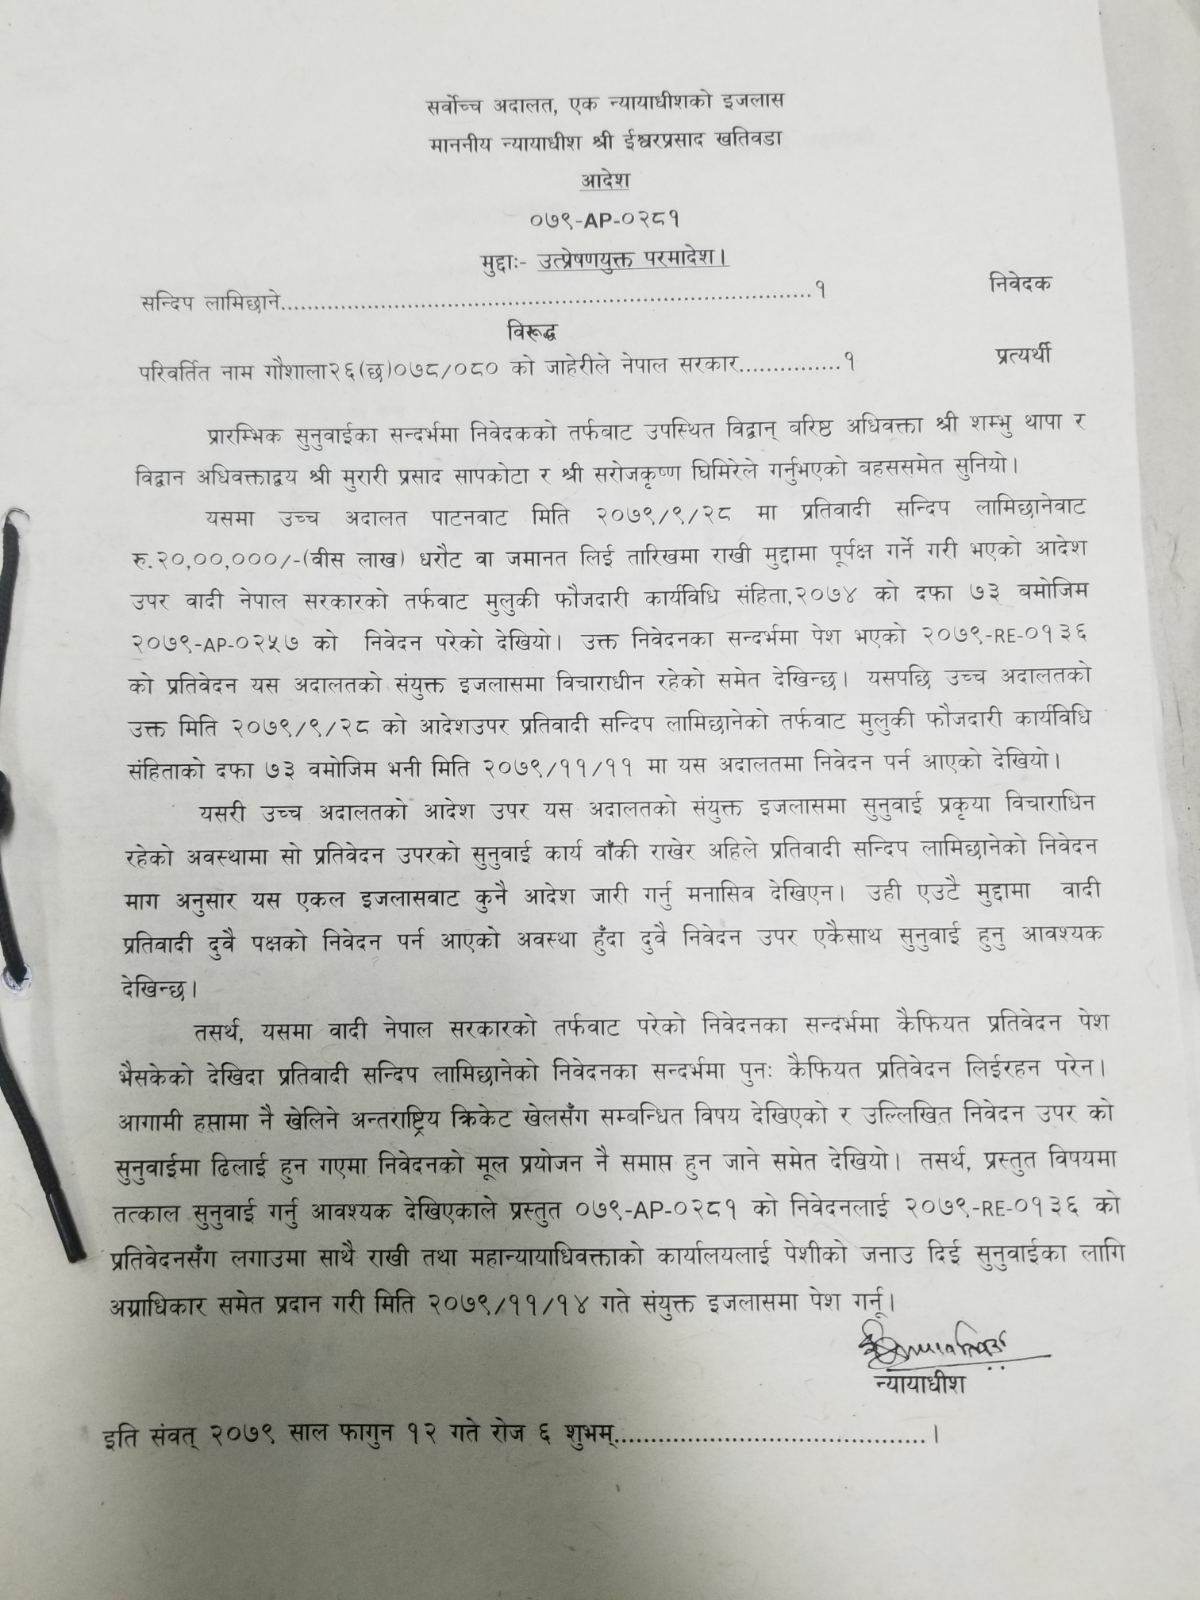 सर्वोच्च अदालत, एक न्यायाधीशको इजलास
माननीय न्यायाधीश श्री ईश्वरप्रसाद खतिवडा
आदेश
०७९-AP-०२८१
मुद्दाः- उत्प्रेषणयुक्त परमादेश।
सन्दिप लामिछाने..........................................................................१ निवेदक
विरूद्ध
परिवर्तित नाम गौशाला२६(छ)०७८/०८० को जाहेरीले नेपाल सरकार...............१ प्रत्यर्थी
प्रारम्भिक सुनुवाईका सन्दर्भमा निवेदकको तर्फवाट उपस्थित विद्वान् वरिष्ठ अधिवक्ता श्री शम्भु थापा र
विद्वान अधिवक्ताद्वय श्री मुरारी प्रसाद सापकोटा र श्री सरोजकृष्ण घिमिरेले गर्नुभएको वहससमेत सुनियो।
यसमा उच्च अदालत पाटनवाट मिति २०७९/९/२८ मा प्रतिवादी सन्दिप लामिछानेवाट
रु.२०,००,०००/-(वीस लाख) धरौट वा जमानत लिई तारिखमा राखी मुद्दामा पूर्पक्ष गर्ने गरी भएको आदेश
उपर वादी नेपाल सरकारको तर्फवाट मुलुकी फौजदारी कार्यविधि संहिता,२०७४ को दफा ७३ बमोजिम
२०७९-AP-०२५७ को निवेदन परेको देखियो। उक्त निवेदनका सन्दर्भमा पेश भएको २०७९-RE-०१३६
को प्रतिवेदन यस अदालतको संयुक्त इजलासमा विचाराधीन रहेको समेत देखिन्छ। यसपछि उच्च अदालतको
उक्त मिति २०७९/९/२८ को आदेशउपर प्रतिवादी सन्दिप लामिछानेको तर्फवाट मुलुकी फौजदारी कार्यविधि
संहिताको दफा ७३ वमोजिम भनी मिति २०७९/११/११ मा यस अदालतमा निवेदन पर्न आएको देखियो।
यसरी उच्च अदालतको आदेश उपर यस अदालतको संयुक्त इजलासमा सुनुवाई प्रकृया विचाराधिन
रहेको अवस्थामा सो प्रतिवेदन उपरको सुनुवाई कार्य वाँकी राखेर अहिले प्रतिवादी सन्दिप लामिछानेको निवेदन
माग अनुसार यस एकल इजलासवाट कुनै आदेश जारी गर्नु मनासिव देखिएन। उही एउटै मुद्दामा वादी
प्रतिवादी दुवै पक्षको निवेदन पर्न आएको अवस्था हुँदा दुवै निवेदन उपर एकैसाथ सुनुवाई हुनु आवश्यक
देखिन्छ।
तसर्थ, यसमा वादी नेपाल सरकारको तर्फवाट परेको निवेदनका सन्दर्भमा कैफियत प्रतिवेदन पेश
भैसकेको देखिदा प्रतिवादी सन्दिप लामिछानेको निवेदनका सन्दर्भमा पुनः कैफियत प्रतिवेदन लिईरहन परेन।
आगामी हप्तामा नै खेलिने अन्तराष्ट्रिय क्रिकेट खेलसँग सम्बन्धित विषय देखिएको र उल्लिखित निवेदन उपर को
सुनुवाईमा ढिलाई हुन गएमा निवेदनको मूल प्रयोजन नै समाप्त हुन जाने समेत देखियो। तसर्थ, प्रस्तुत विषयमा
तत्काल सुनुवाई गर्नु आवश्यक देखिएकाले प्रस्तुत ०७९-AP-०२८१ को निवेदनलाई २०७९-RE-०१३६ को
प्रतिवेदनसँग लगाउमा साथै राखी तथा महान्यायाधिवक्ताको कार्यालयलाई पेशीको जनाउ दिई सुनुवाईका लागि
अग्राधिकार समेत प्रदान गरी मिति २०७९/११/१४ गते संयुक्त इजलासमा पेश गर्नू।
न्यायाधीश
इति संवत् २०७९ साल फागुन १२ गते रोज ६ शुभम्...........................................।